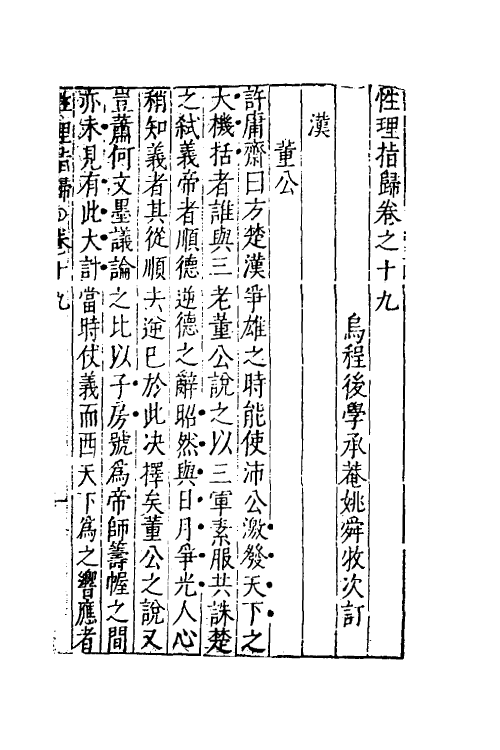 性理指歸卷之十九
烏程後學承菴姚舜牧次訂
漢
董公
許庸齋曰方楚漢爭雄之時能使沛公激發天下之
大機括者誰與三老董公說之以三軍素服共誅楚
之弑義帝者順德逆德之辭昭然與日月爭光人心
稍知義者其從順去逆已於此决擇矣董公之說又
豈蕭何文墨議論之比以子房號爲帝師籌幄之間
亦未見有此大計當時仗義而西天下爲之響應者
性理指歸 卷十九 一